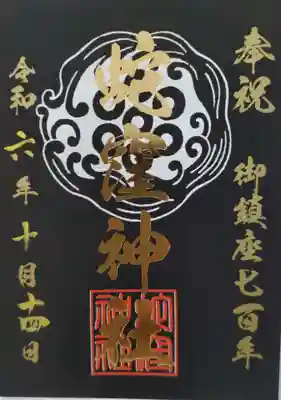 奉祝 御鎮座七百年
蛇窪神社
令和六年十月十四日